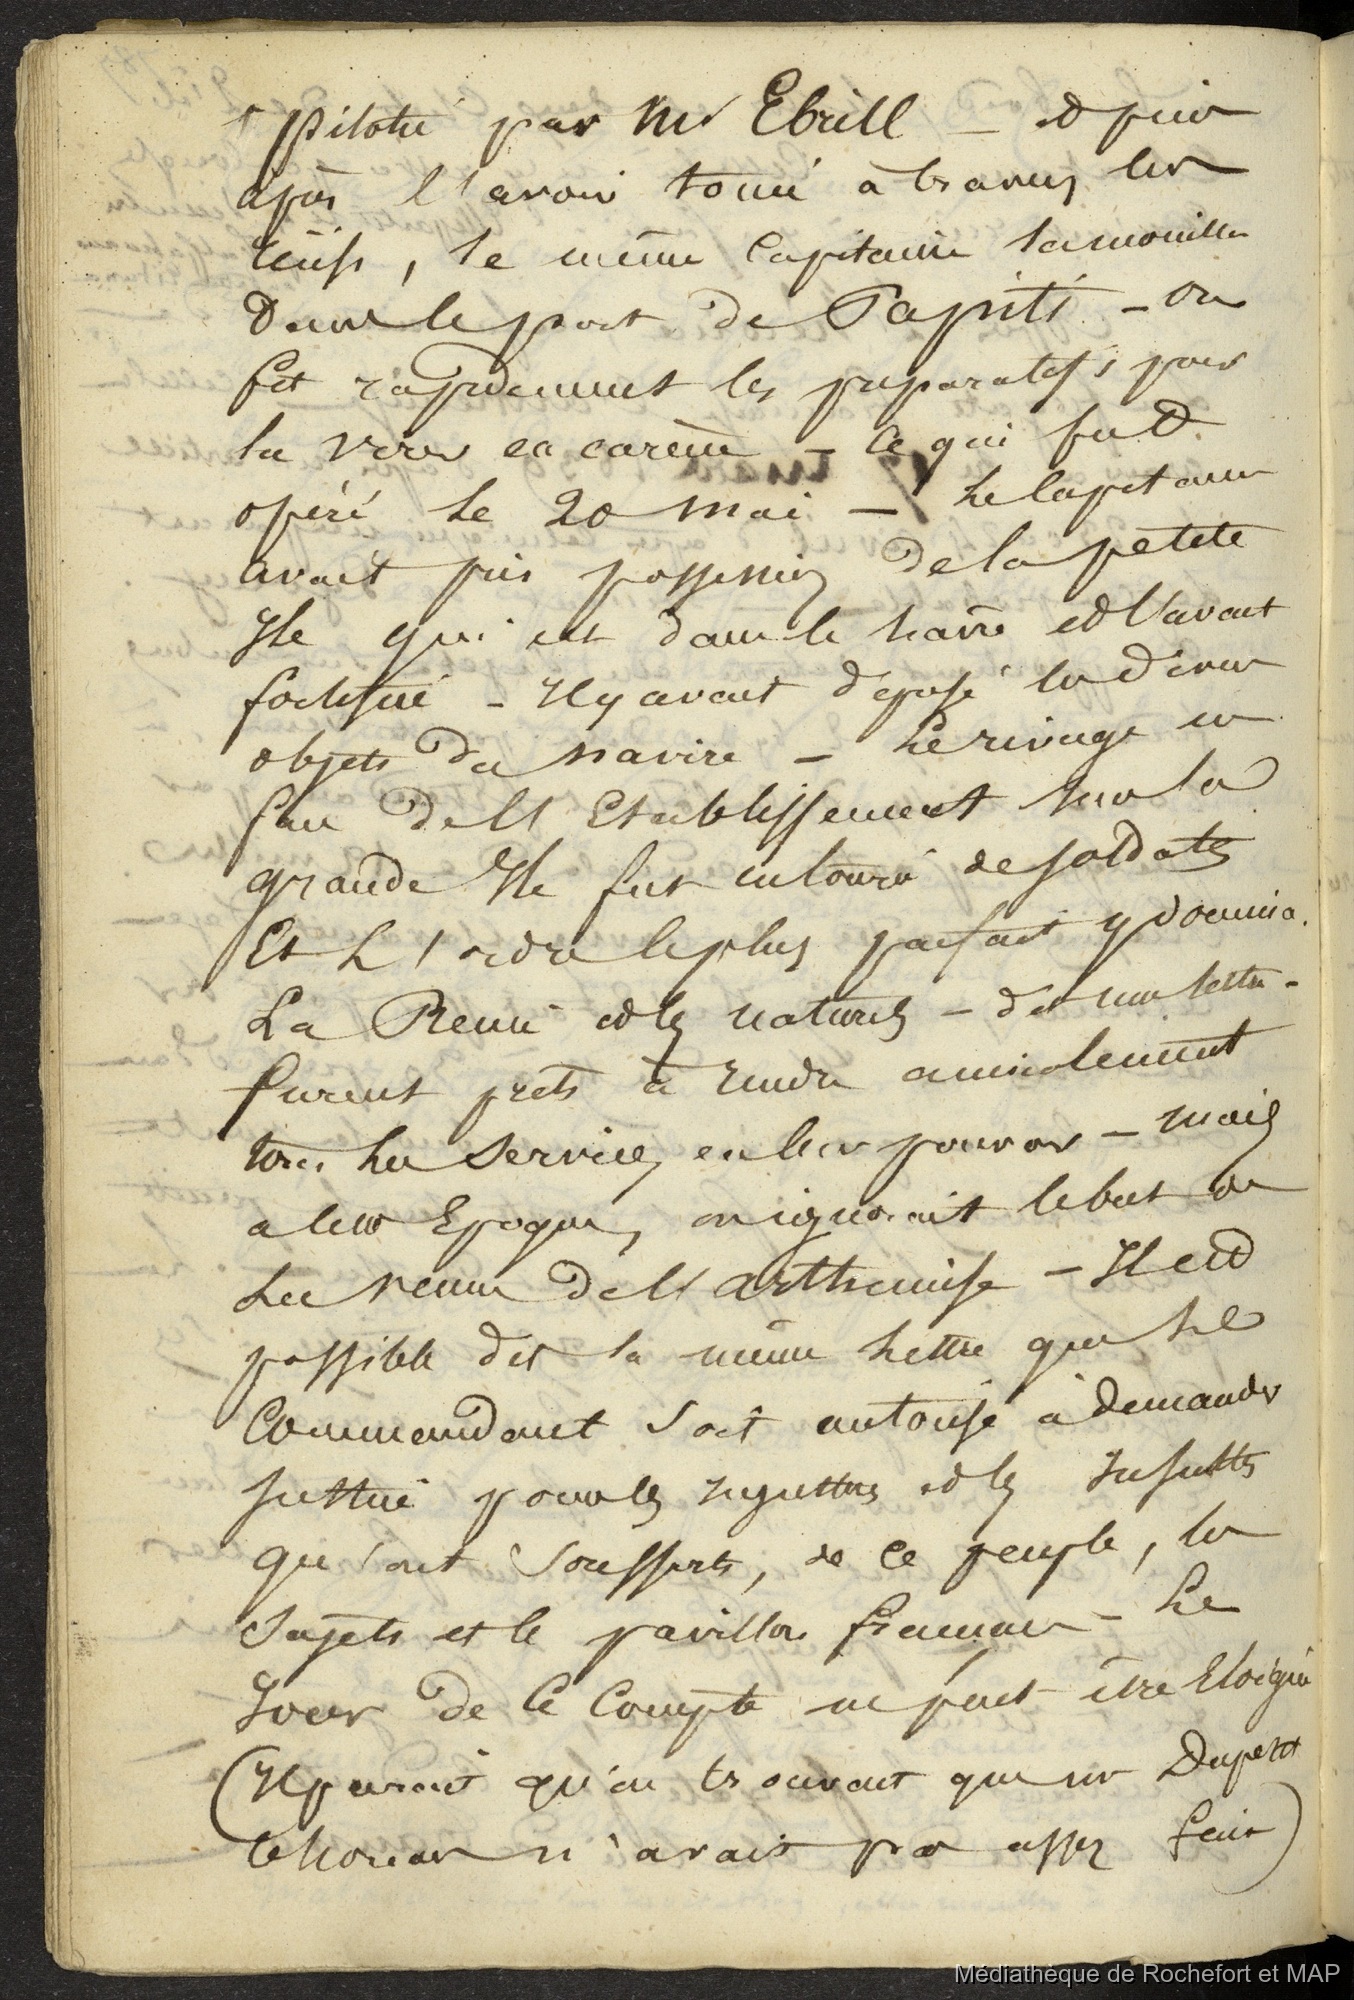 piloté par Mr Ebrill – et puis
après l'avoir toué à travers les
récifs, le même Capitaine la mouilla
Dans le port de Papiti – On
fit rapidement les préparatifs pour
la virer en carène – Ce qui fut
opéré le 20 mai – Le Capitaine
avait pris possession de la petite
Ile qui est dans le havre et l'avait
fortifié – Il y avait déposé les divers
objets du navire – Le rivage en
face de l'Etablissement sur la
grande Ile fut entouré de soldats
Et L'ordre le plus parfait y domina.
La Reine et les naturels – dit une lettre –
furent prêts à rendre amicalement
tous les services en leur pouvoir – mais
a cette Epoque, on ignorait le but de
La venue de l'arthemise – Il est
possible dit la même lettre que Le
Commandant soit autorisé à demander
justice pour les injustices et les Insultes
qu'ont soufferts, de ce peuple, les
sujets et le pavillon français – Le
Jour de Ce Compte ne peut être Eloigné
(Il parait qu'on trouvait que mr Dupetit
thouars n'avait pas assez fait)
Médiathèque de Rochefort et MAP